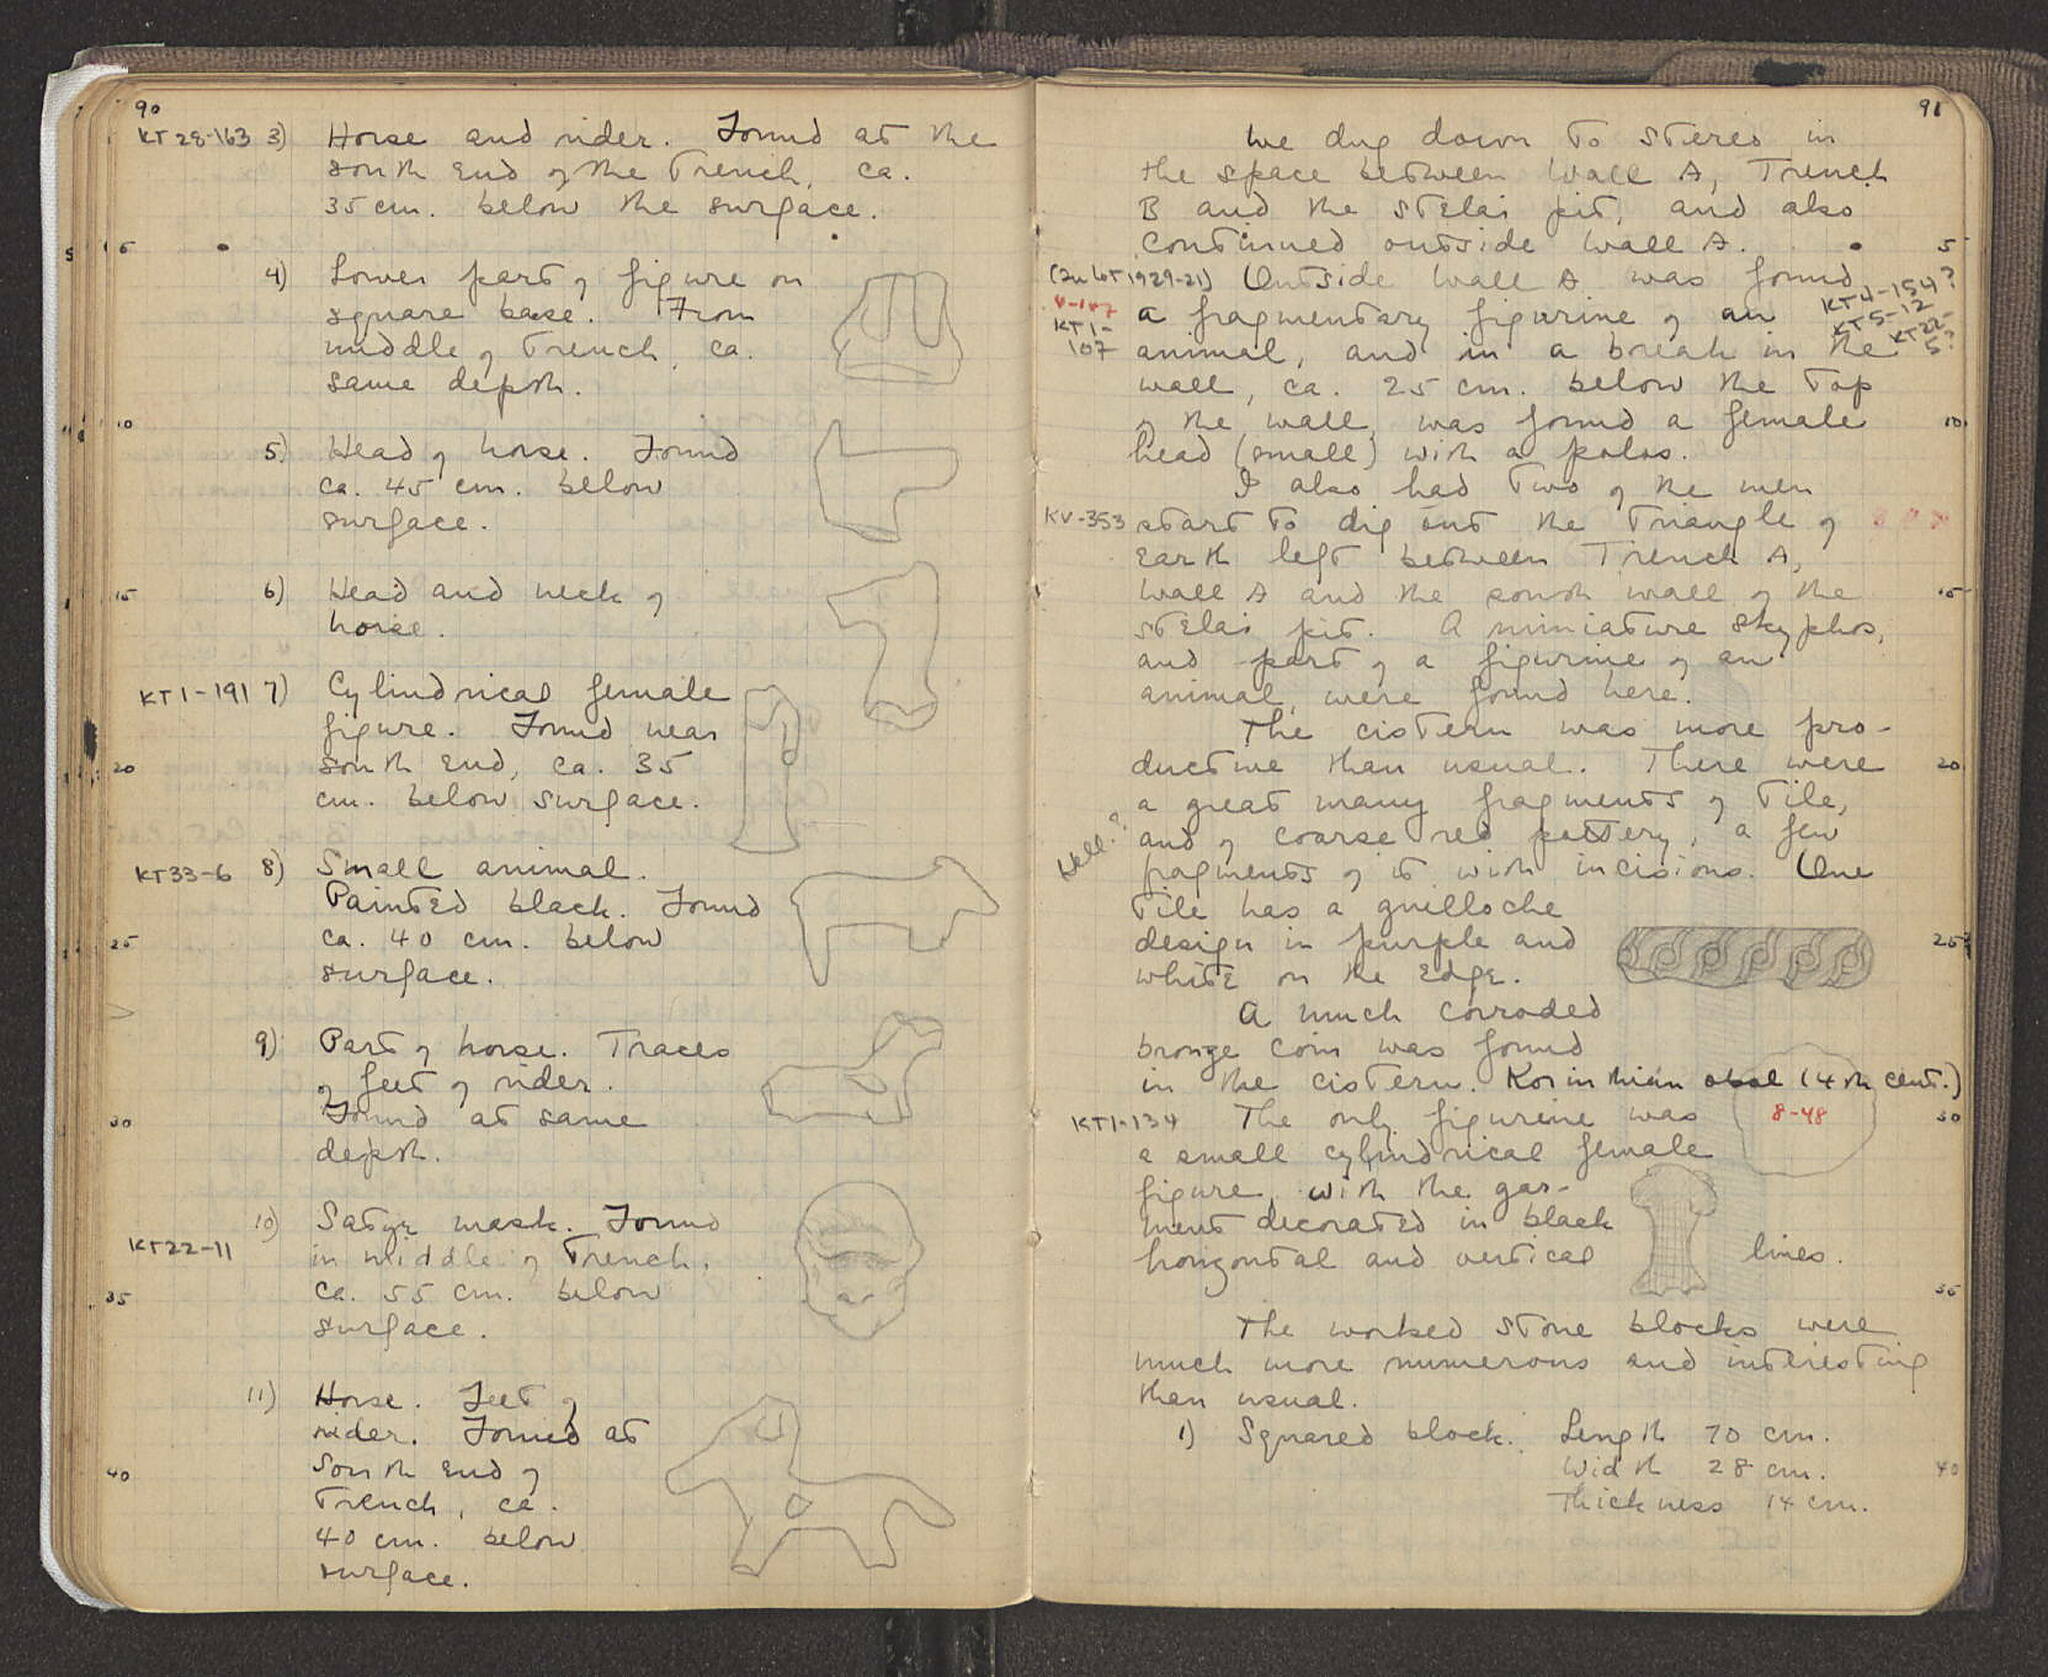 90
KT28-163 3) Horse and rider. Found at the
south end of the Trench, ca.
35 cm. below the surface.
5
4) Lower part of figure on
square base. From
middle of Trench, ca.
same depth.
10
5) Head of horse. Found
ca. 45 cm. below
surface.
15 6) Head and neck of
horse.
KT1-191 7) Cylindrical female
figure. Found near
20 south end, ca. 35
cm. below surface.
KT33-6 8) Small animal.
Painted black. Found
25 ca. 40 cm. below
surface.
9) Part of horse. Traces
of feet of rider.
30 Found at same
depth.
10) Satyr mask. Found
KT22-11 in middle of Trench,
35 ca. 55 cm. below
surface.
11) Horse. Feet of
rider. Found at
40 South end of
Trench, ca.
40 cm. below
surface.
91
We dug down to stereo in
the space between Wall A, Trench
B and the stelai pit, and also
continued outside Wall A. 5
(In lot 1929-21) Outside Wall A was found
KT4-154?
KT5-12
KT22-5?
KT1-107
a fragmentary figurine of an
animal, and in a break in the
wall, ca. 25 cm. below the top
of the wall, was found a female 10
head (small) with a polos.
I also had two of the men
KV-353 start to dig out the triangle of
earth left between Trench A,
Wall A and the south wall of the 15
stelai pit. A miniature skyphos,
and part of a figurine of an
animal, were found here.
The cistern was more pro-
ductive than usual. There were 20
a great many fragments of tile,
and of coarse red pottery, a few
Hell.? fragments of it with incisions. One
tile has a guilloche
design in purple and 25
white on the edge.
A much corroded
bronze coin was found
in the cistern. Korinthian obol (4th cent.)
KT1-134 The only figurine was 8-48 30
a small cylindrical female
figure, with the gar-
ment decorated in black
horizontal and vertical lines.
35
The worked stone blocks were
much more numerous and interesting
than usual.
1) Squared block. Length 70 cm.
Width 28 cm. 40
Thickness 14 cm.